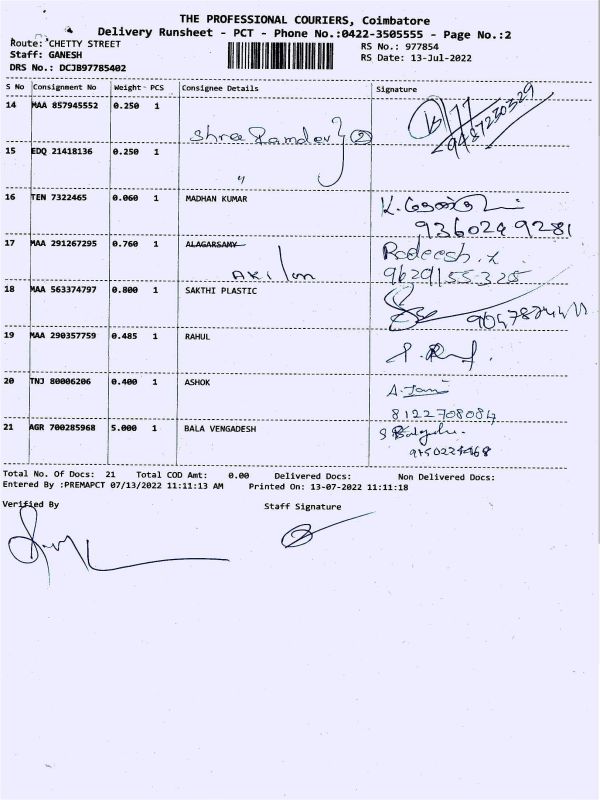 THE PROFESSIONAL COURIERS, Coimbatore
Delivery Runsheet - PCT - Phone No.:0422-3505555 - Page No.:2
Route: CHETTY STREET RS No.: 977854
Staff: GANESH RS Date: 13-Jul-2022
DRS No.: DCJB97785402
S No Consignment No Weight- PCS Consignee Details Signature
14 MAA 857945552 0.250 1
Shree Ramdev 2
9487230329
15 EDQ 21418136 0.250 1
"
16 TEN 7322465 0.060 1 MADHAN KUMAR K.
9360249281
17 MAA 291267295 0.760 1 ALAGARSAMY
Akilan 9629155325
18 MAA 563374797 0.800 1 SAKTHI PLASTIC
19 MAA 290357759 0.485 1 RAHUL
20 TNJ 80006206 0.400 1 ASHOK A. Jani
8122708084
21 AGR 700285968 5.000 1 BALA VENGADESH
Total No. Of Docs: 21 Total COD Amt: 0.00 Delivered Docs: Non Delivered Docs:
Entered By :PREMAPCT 07/13/2022 11:11:13 AM Printed On: 13-07-2022 11:11:18
Verified By Staff Signature